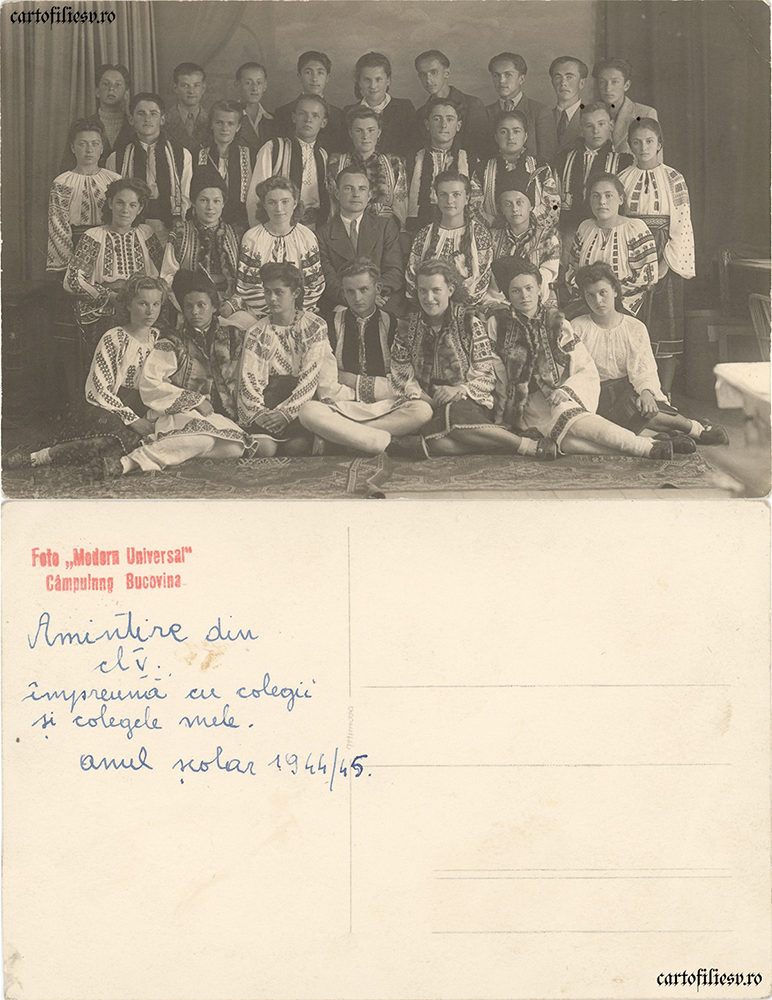 cartofiliesv.ro
Foto „Modern Universal"
Câmpulnng Bucovina
Amintire din
cl V.
împreună cu colegii
și colegele mele.
anul școlar 1944/45.
cartofiliesv.ro